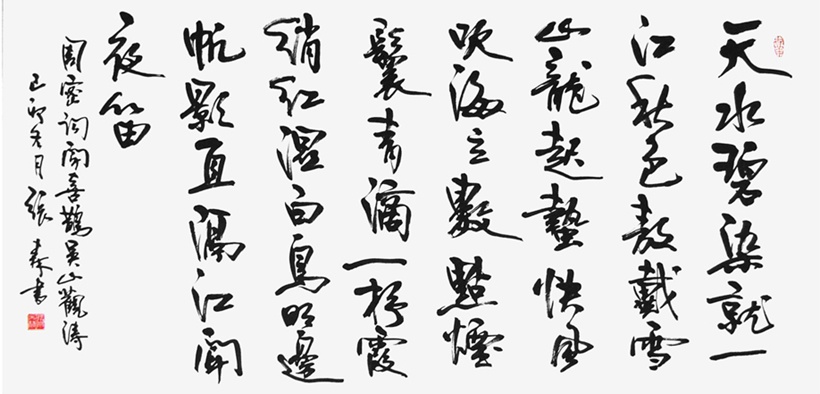 天水碧染就一
江秋色敖戴雪
山龍起蟄快風
吹海立數點煙
鬟青滴一杼霞
綃紅濕白鳥明邊
帆影直隔江聞
夜笛
周密詞聞喜鵲吴山觀濤
己卯冬月張森書